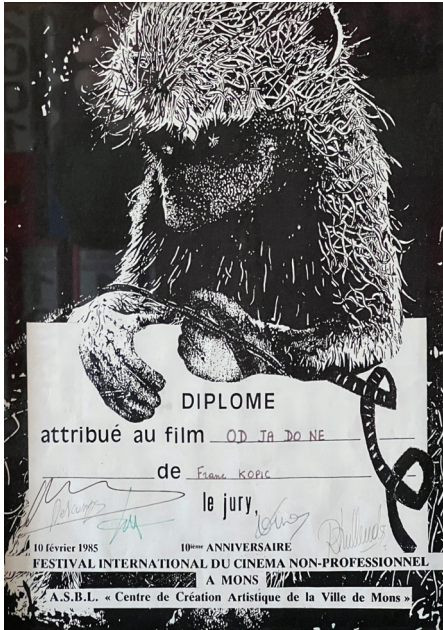 DIPLOME
attribué au film OD JA DO NE
de Franc KOPIC
le jury,
10 février 1985 10ième ANNIVERSAIRE
FESTIVAL INTERNATIONAL DU CINEMA NON-PROFESSIONNEL
A MONS
A.S.B.L. « Centre de Création Artistique de la Ville de Mons »